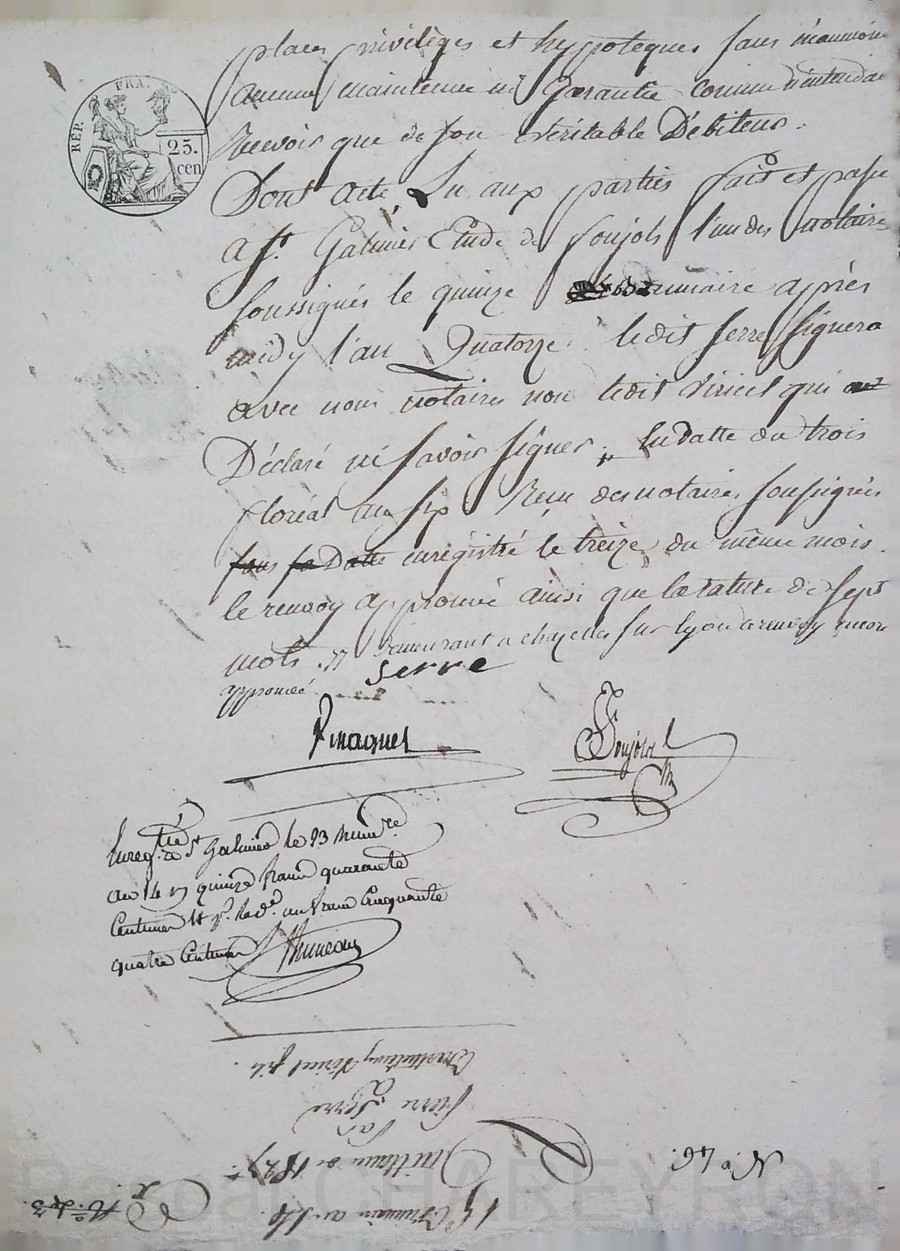 RÉP. FRA.
25. cen
places privilèges et hypoteques sans
aucune maintenue ni Garantie comme n'entendan
recevoir que de son véritable Débiteur.
Dont acte, Lu aux parties fait et passé
a St. Galmier Etude de Soujols l'un des notaires
soussignés le quinze brumaire après
midy l'an Quatorze. ledit Serre signera
avec nous notaires non ledit qui
Déclaré ne savoir signer. en datte du trois
floréal an six Reçu des notaires soussignés
sous sa Datte enregistré le treize du même mois.
le renvoy approuvé ainsi que la rature de sept
mots. demeurant a chazelles sur lyon renvoy encore
approuvé. Serre
Pinaquel Soujols
Enreg.tré a St Galmier le 23 brum.re
an 14 quinze francs quarante
Centimes un franc Cinquante
quatre Centimes
fils
Pierre Serre
Par
Quittance de 182
N.o 46.
15 Brumaire an 14.
Pascal CHAREYRON